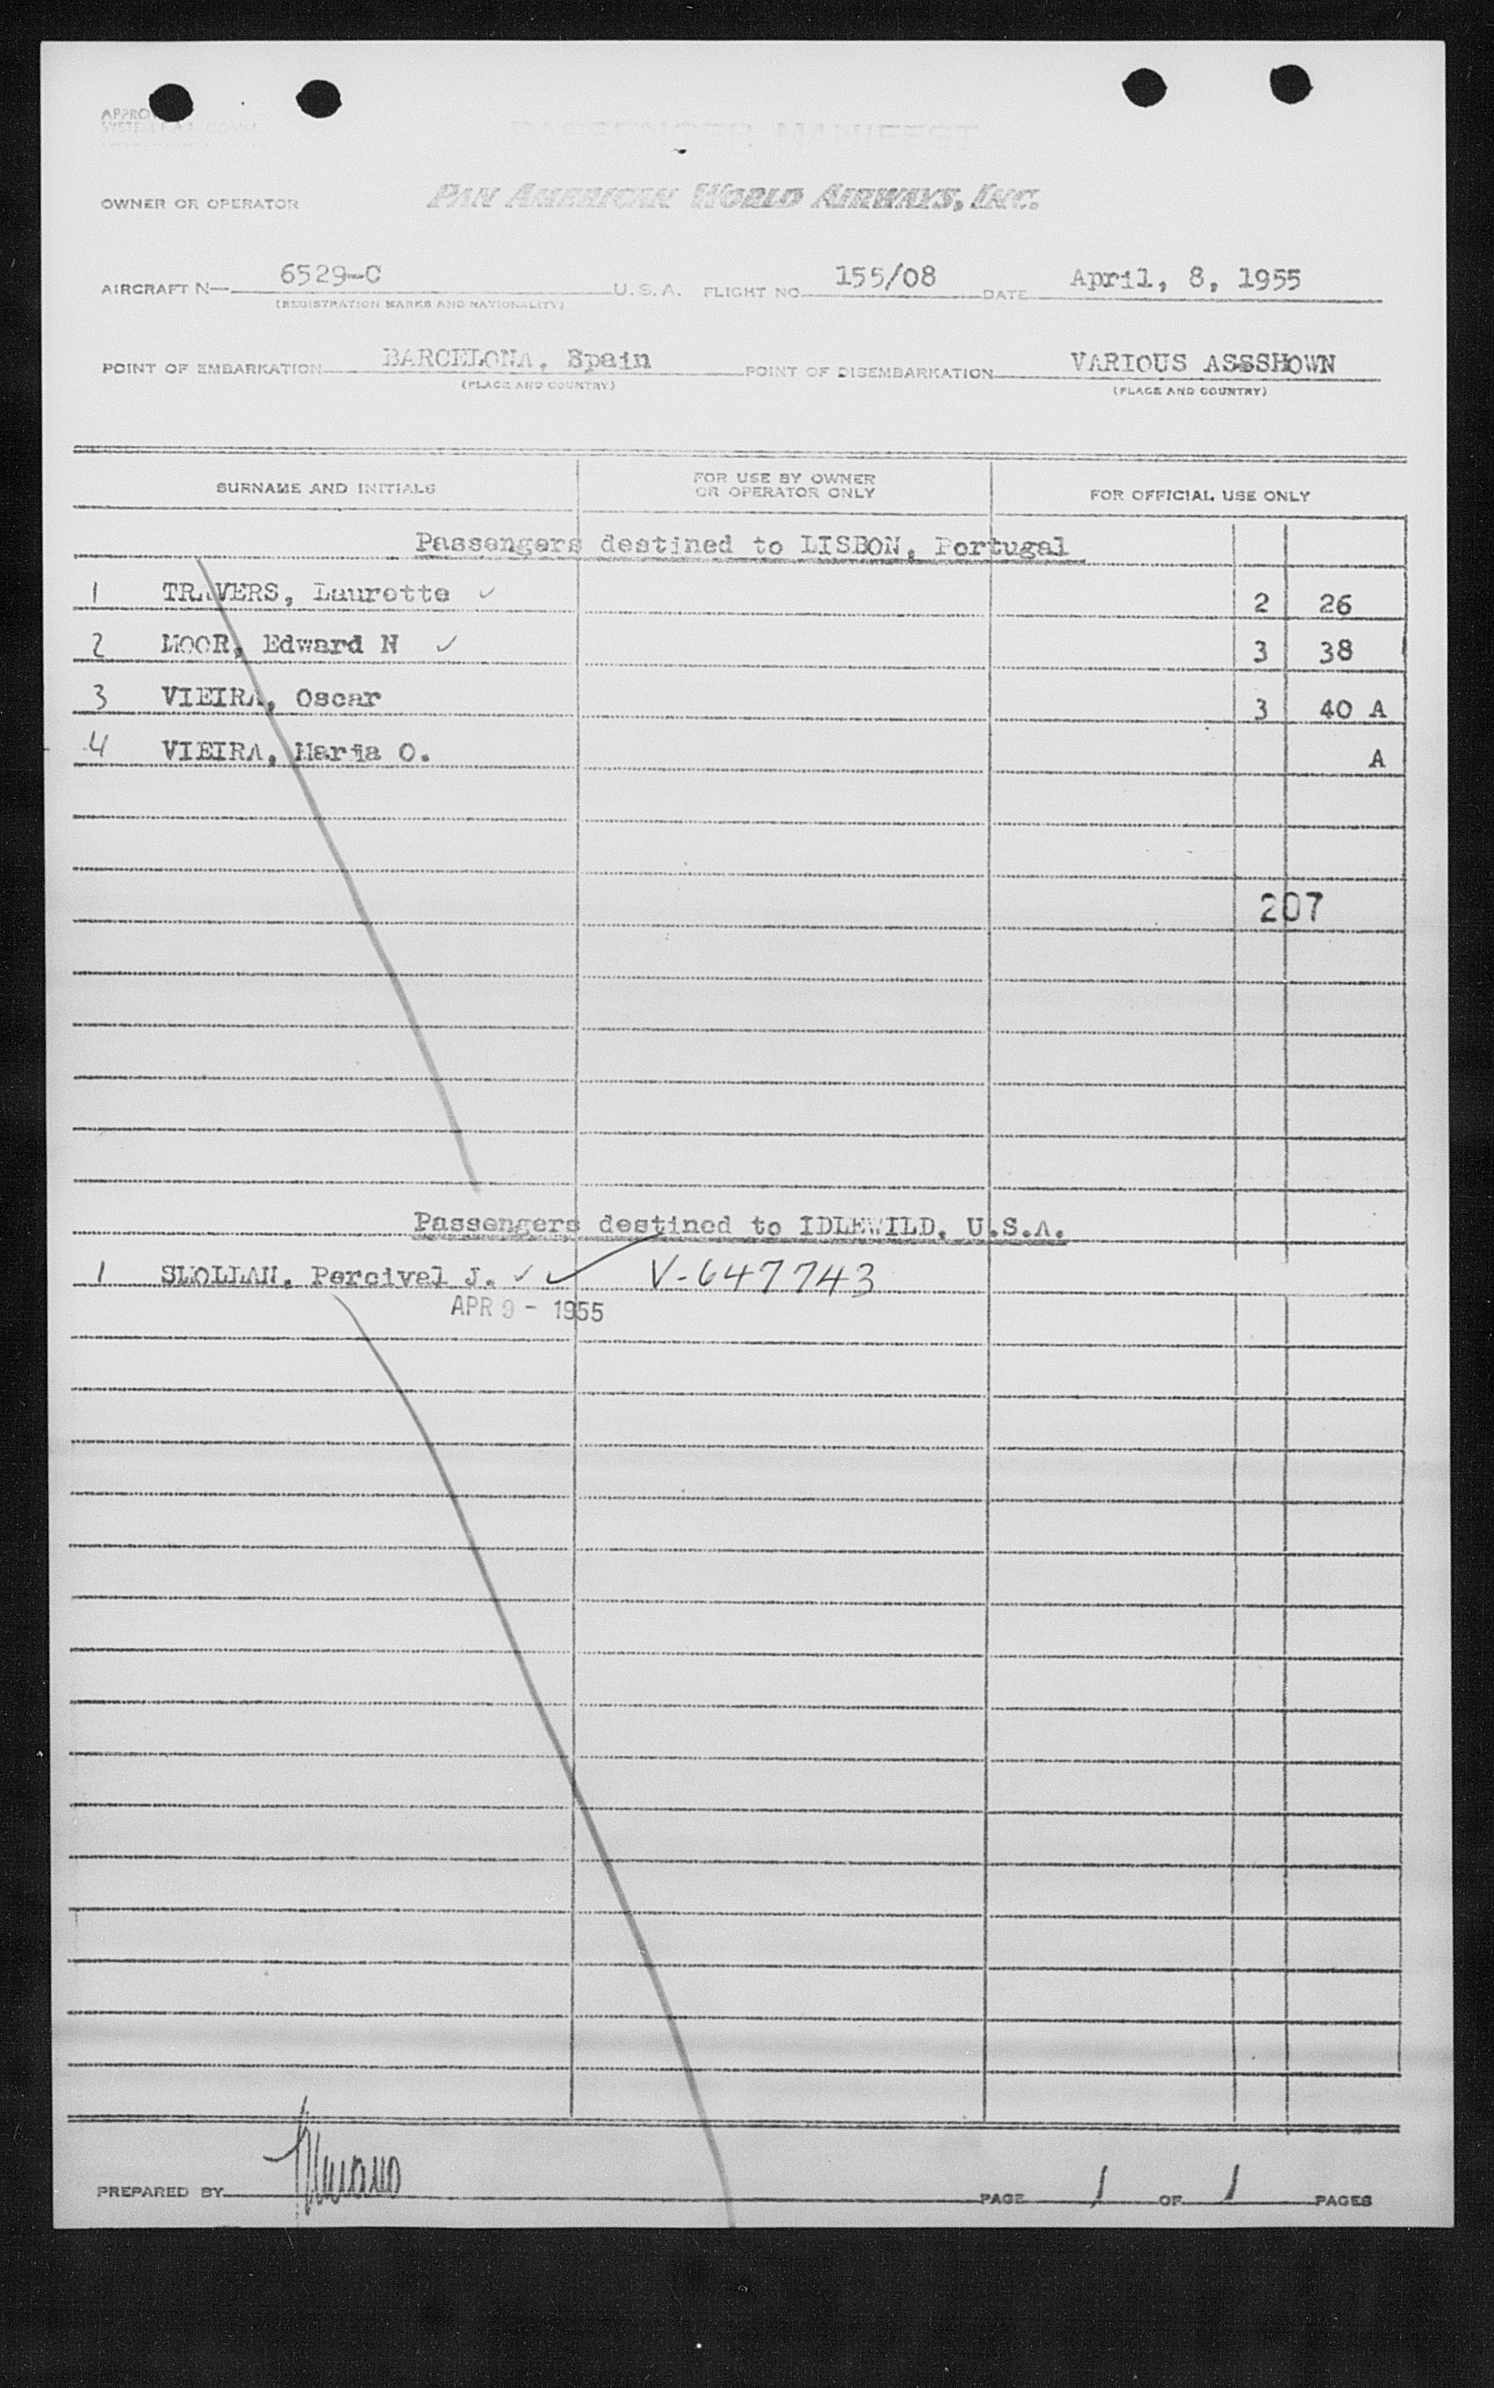 PASSENGER MANIFEST
OWNER OR OPERATOR PAN AMERICAN WORLD AIRWAYS, INC.
AIRCRAFT N— 6529-C U.S.A. FLIGHT NO. 155/08 DATE April, 8, 1955
(REGISTRATION MARKS AND NATIONALITY)
POINT OF EMBARKATION BARCELONA, Spain POINT OF DISEMBARKATION VARIOUS ASSSHOWN
(PLACE AND COUNTRY) (PLACE AND COUNTRY)
SURNAME AND INITIALS FOR USE BY OWNER OR OPERATOR ONLY FOR OFFICIAL USE ONLY
Passengers destined to LISBON, Portugal
1 TRAVERS, Laurette ✓ 2 26
2 MOOR, Edward N ✓ 3 38
3 VIEIRA, Oscar 3 40 A
4 VIEIRA, Maria O. A
207
Passengers destined to IDLEWILD, U.S.A.
1 Percival J. ✓ ✓ V-647743
APR 9 - 1955
PREPARED BY PAGE 1 OF 1 PAGES